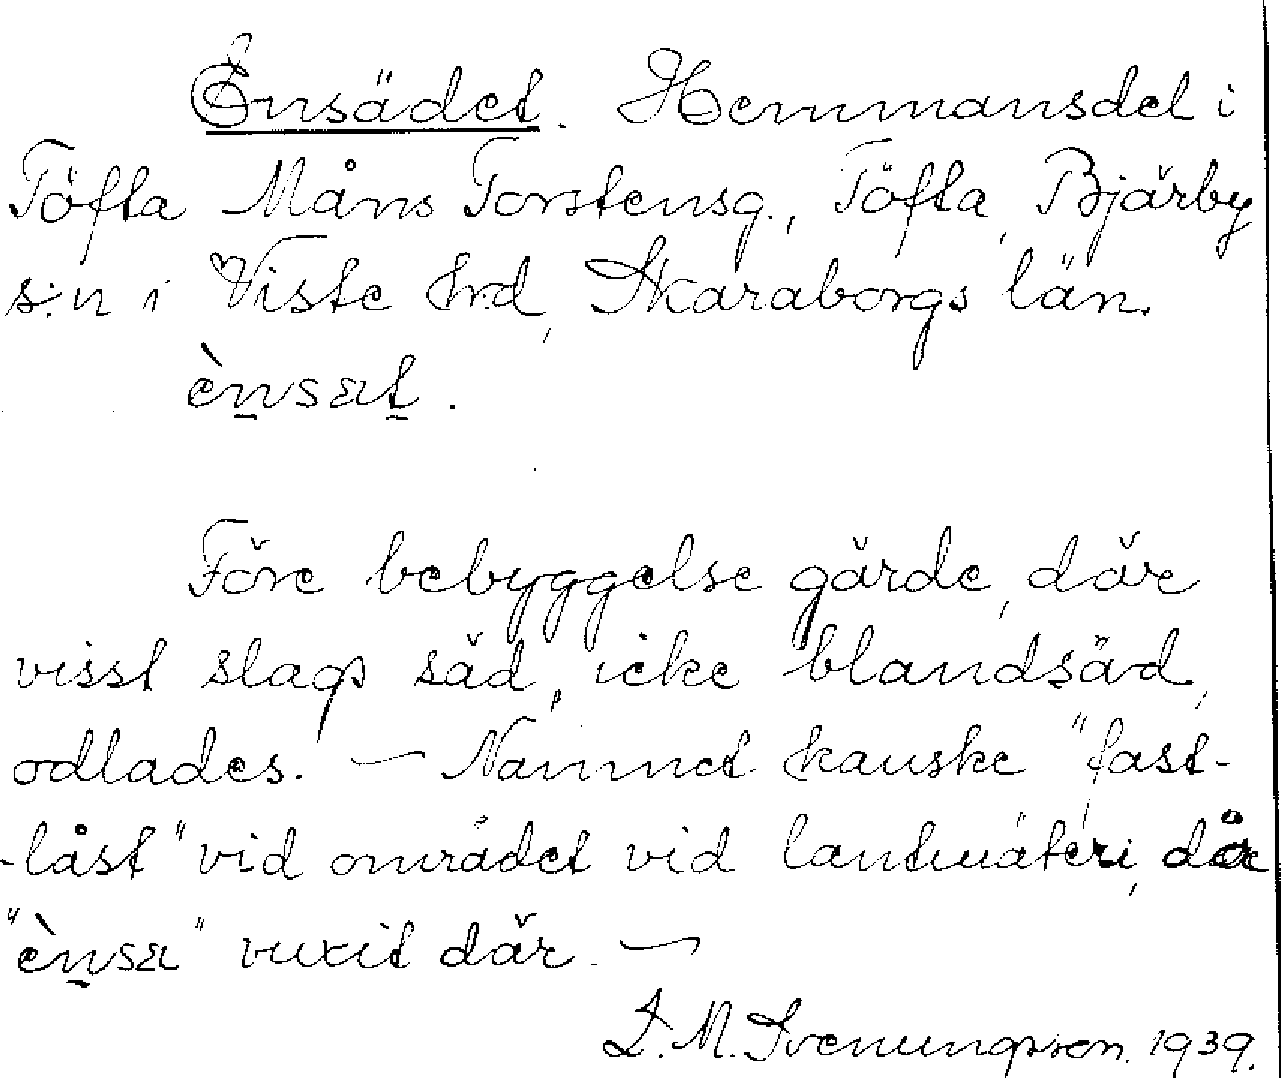 Ensädet. Hemmansdel i
Töfta Måns Torstensg., Töfta, Bjärby
s:n i Viste hrd, Skaraborgs län.
ènsæt.
Före bebyggelse gärde, där
visst slags säd, icke blandsäd,
odlades. — Namnet kanske "fast-
-låst" vid området vid lantmäteri, då
"ènsæ" vuxit där. —
L. M. Svenungsson. 1939.